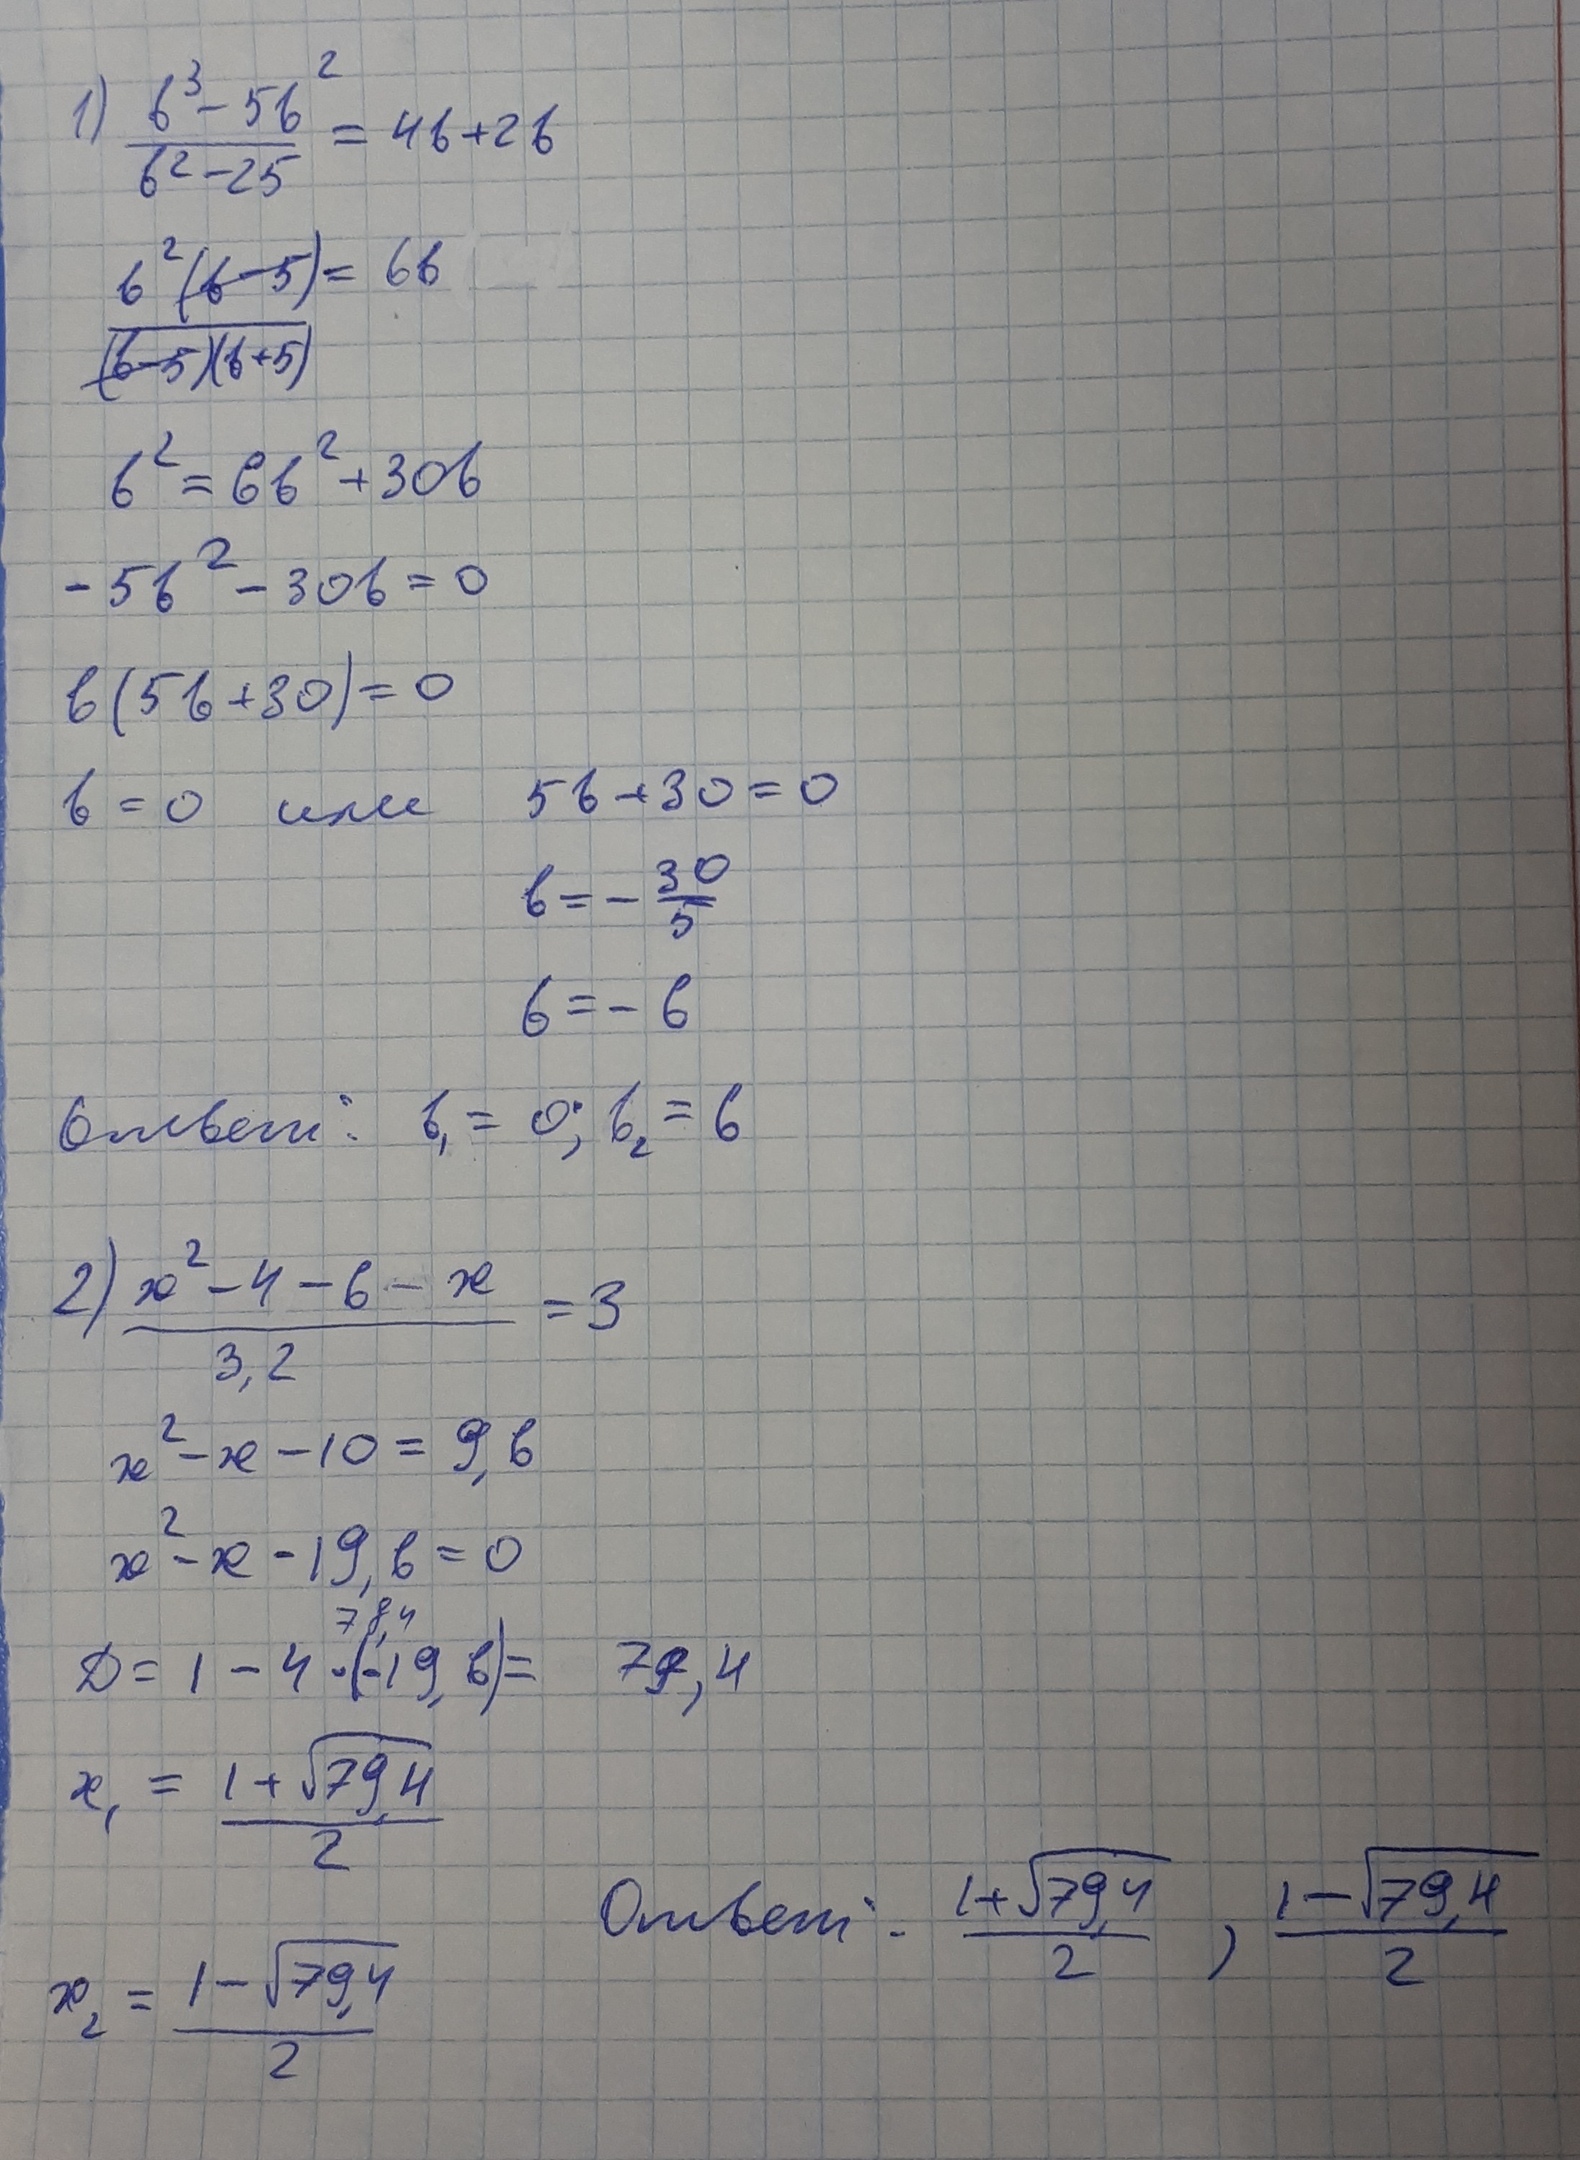 1) (b³ - 5b²)/(b² - 25) = 4b + 2b
b²(b-5)/((b-5)(b+5)) = 6b
b² = 6b² + 30b
-5b² - 30b = 0
b(5b+30) = 0
b = 0 или 5b+30 = 0
b = - 30/5
b = - 6
Ответ: b₁ = 0; b₂ = 6
2) (x² - 4 - 6 - x)/3,2 = 3
x² - x - 10 = 9,6
x² - x - 19,6 = 0
78,4
D = 1 - 4 · (-19,6) = 79,4
x₁ = (1+√79,4)/2
Ответ: (1+√79,4)/2 , (1-√79,4)/2
x₂ = (1-√79,4)/2